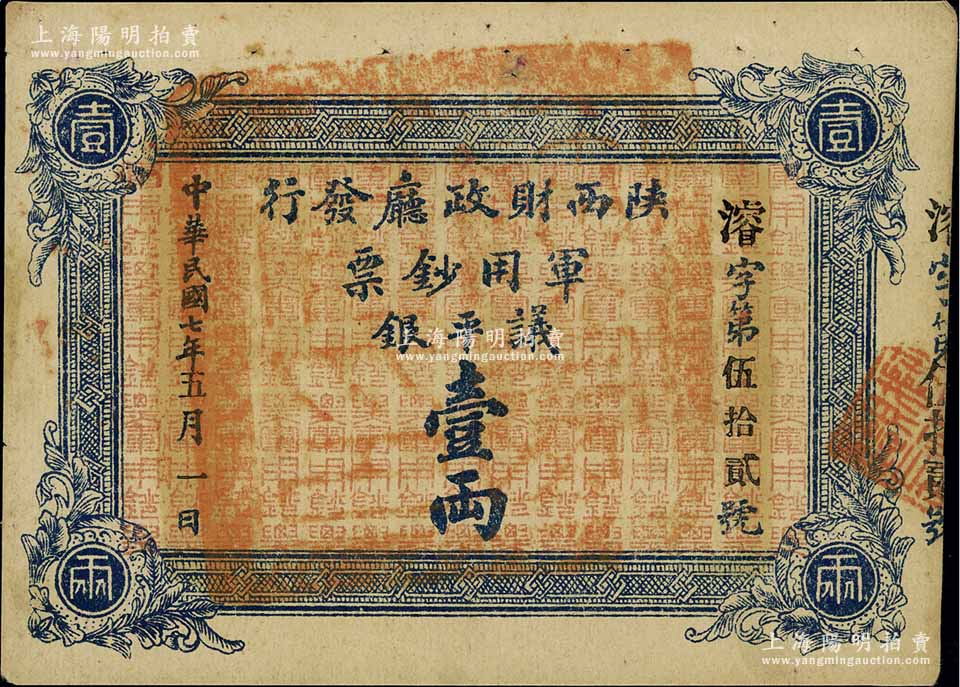 上海陽明拍賣
www.yangmingauction.com
上海陽明拍賣
www.yangmingauction.com
壹
壹
陕西財政廳發行
軍用鈔票
議平銀
壹两
濬字第伍拾貳號
中華民國七年五月一日
上海陽明拍賣
www.yangmingauction.com
兩
兩
上海陽明拍賣
www.yangmingauction.com